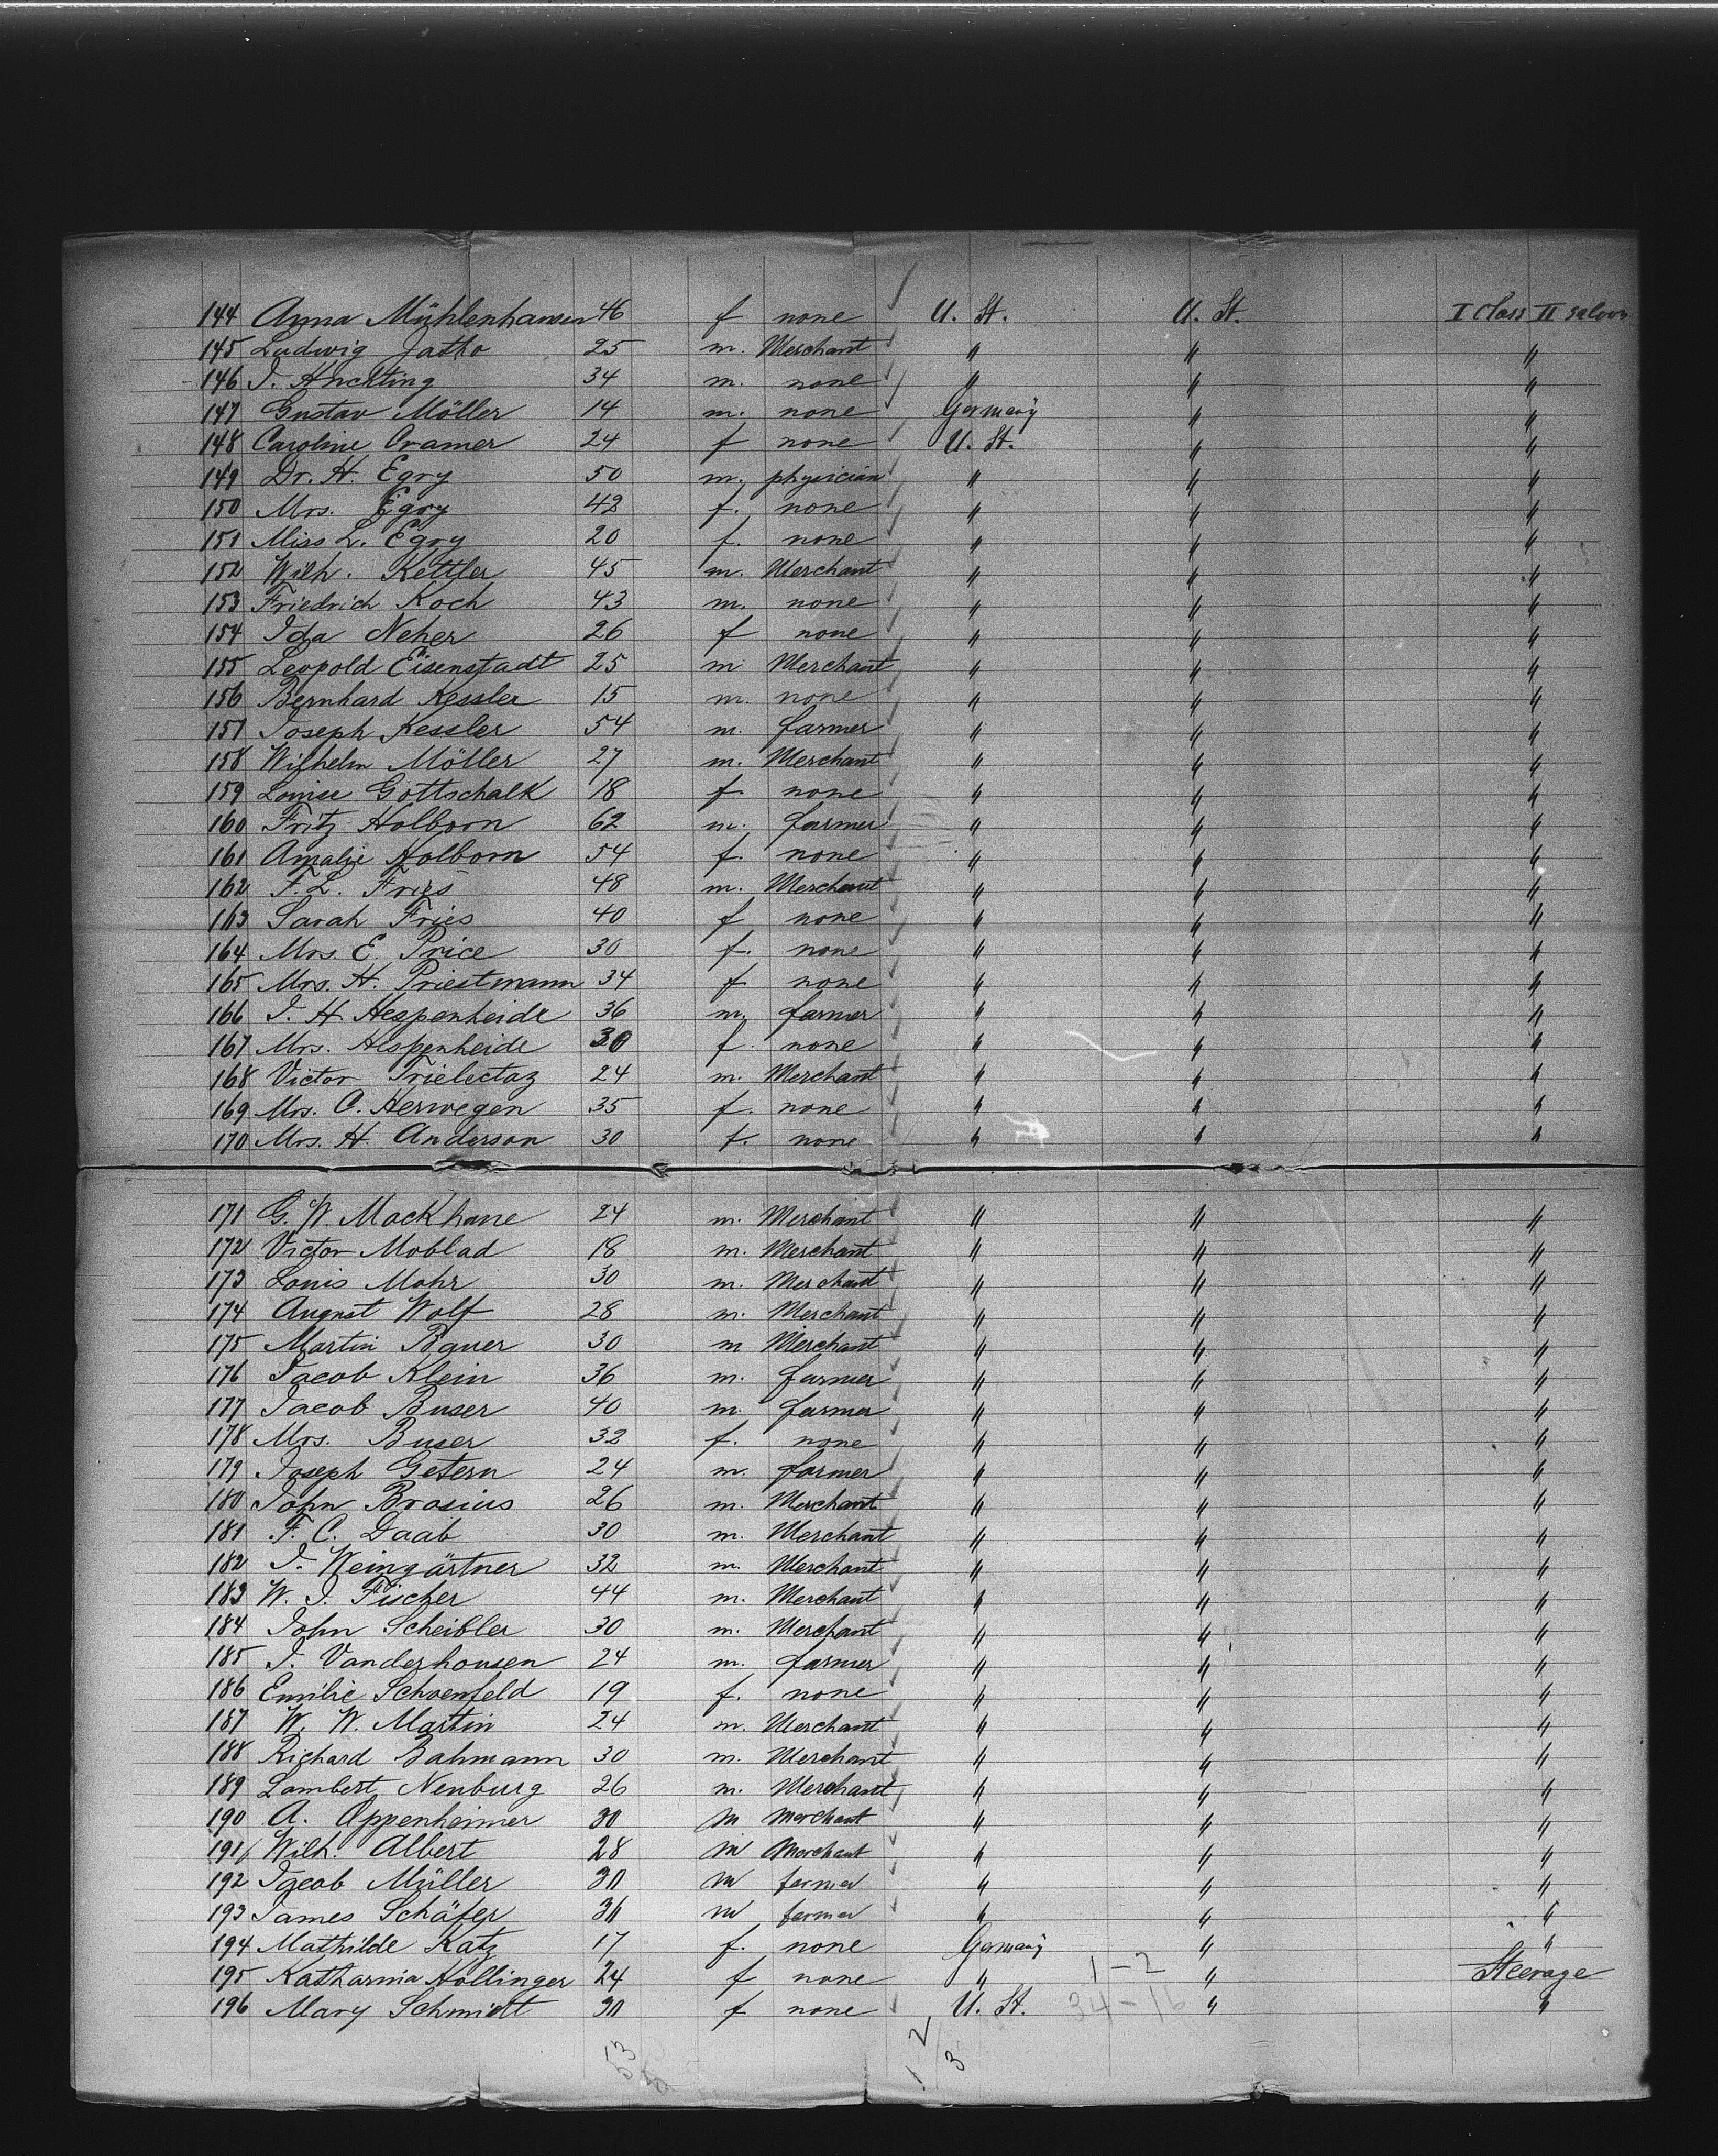 144 Anna Mühlenhausen 46 f none U. St. U. St. I Class II saloon
145 Ludwig Jatho 25 m. Merchant " " "
146 J. Huchting 34 m. none " " "
147 Gustav Möller 14 m. none Germany " "
148 Caroline Cramer 24 f none U. St. " "
149 Dr. H. Egry 50 m. physician " " "
150 Mrs. Egry 42 f. none " " "
151 Miss L. Egry 20 f. none " " "
152 Wilh. Kettler 45 m. Merchant " " "
153 Friedrich Koch 43 m. none " " "
154 Ida Neher 26 f none " " "
155 Leopold Eisenstadt 25 m Merchant " " "
156 Bernhard Kessler 15 m. none " " "
157 Joseph Kessler 54 m. farmer " " "
158 Wilhelm Möller 27 m. Merchant " " "
159 Louise Gottschalk 18 f none " " "
160 Fritz Holborn 62 m. farmer " " "
161 Amalie Holborn 54 f. none " " "
162 F. L. Fries 48 m. Merchant " " "
163 Sarah Fries 40 f none " " "
164 Mrs. E. Price 30 f. none " " "
165 Mrs. H. Priestmann 34 f none " " "
166 J. H. Hespenheide 36 m. farmer " " "
167 Mrs. Hespenheide 30 f. none " " "
168 Victor Trielectaz 24 m. Merchant " " "
169 Mrs. C. Herwegen 35 f. none " " "
170 Mrs. H. Anderson 30 f. none " " "
171 G. W. Mackhane 24 m. Merchant " " "
172 Victor Moblad 18 m. Merchant " " "
173 Louis Mohr 30 m. Merchant " " "
174 August Wolf 28 m. Merchant " " "
175 Martin Bauer 30 m Merchant " " "
176 Jacob Klein 36 m. farmer " " "
177 Jacob Buser 40 m. farmer " " "
178 Mrs. Buser 32 f. none " " "
179 Joseph Getern 24 m. farmer " " "
180 John Brosius 26 m. Merchant " " "
181 F. C. Daab 30 m. Merchant " " "
182 J. Weingärtner 32 m. Merchant " " "
183 W. J. Fischer 44 m. Merchant " " "
184 John Scheibler 30 m. Merchant " " "
185 J. Vanderhousen 24 m. farmer " " "
186 Emilie Schoenfeld 19 f. none " " "
187 W. W. Martin 24 m. Merchant " " "
188 Richard Bahmann 30 m. Merchant " " "
189 Lambert Neuburg 26 m. Merchant " " "
190 A. Oppenheimer 30 m Merchant " " "
191 Wilh. Albert 28 m Merchant " " "
192 Jacob Müller 30 m farmer " " "
193 James Schäfer m farmer " " "
194 Mathilde Katz 17 f. none Germany " "
195 Katharina Hollinger 24 f none " 1-2 " Steerage
196 Mary Schmidt 30 f none U. St. 34-16 " "
53 2
3